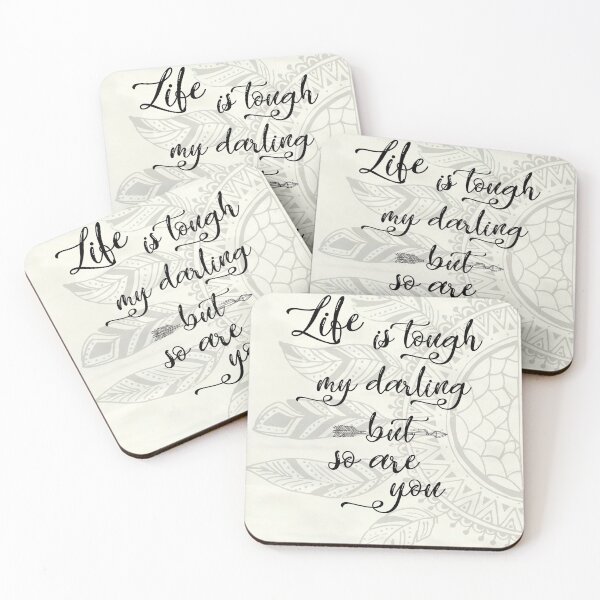 Life is tough
my darling
Life is tough
my darling
but
so are
Life is tough
my darling
but
so are
yo
Life is tough
my darling
but
so are
you